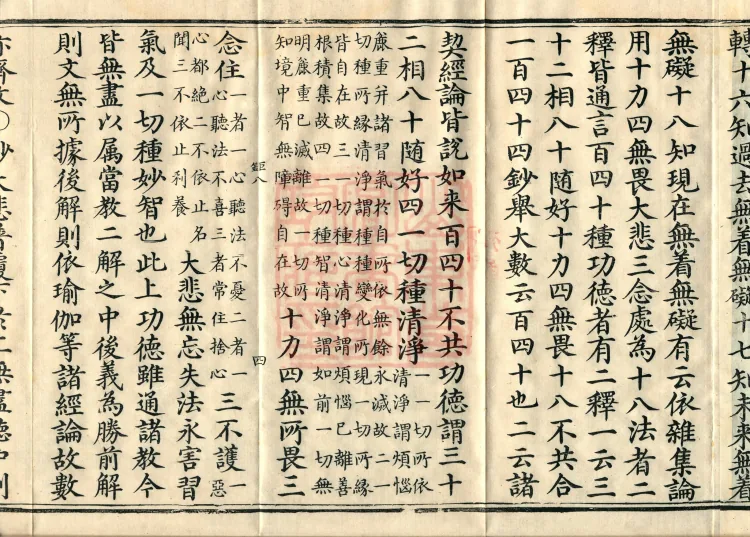 轉十六知過去無着無礙十七知未来無着
無礙十八知現在無着無礙有云依雜集論
用十力四無畏大悲三念處為十八法者二
釋皆通言百四十種功德者有二釋一云三
十二相八十随好十力四無畏十八不共合
一百四十四鈔舉大數云百四十也二云諸
契經論皆説如来百四十不共功德謂三十
二相八十随好四一切種清淨一一切所依
清淨謂煩惱
麁重并諸習氣於自所依無餘永滅故二一
切種所緣清淨謂種種變化所現一切所緣
皆自在故三一切種心清淨謂煩惱已離善
根積集故四一切種智清淨謂如前一切無
明麁重已滅離故一切所
知境中智無障碍自在故十力四無所畏三
鉅八
四
念住一者一心聽法不憂二者一
心聽法不喜三者常住捨心三不護一
惡
心都絕二不依止名
聞三不依止利養大悲無忘失法永害習
氣及一切種妙智也此上功德雖通諸教今
皆無盡以属當教二解之中後義為勝前解
則文無所據後解則依瑜伽等諸經論故數